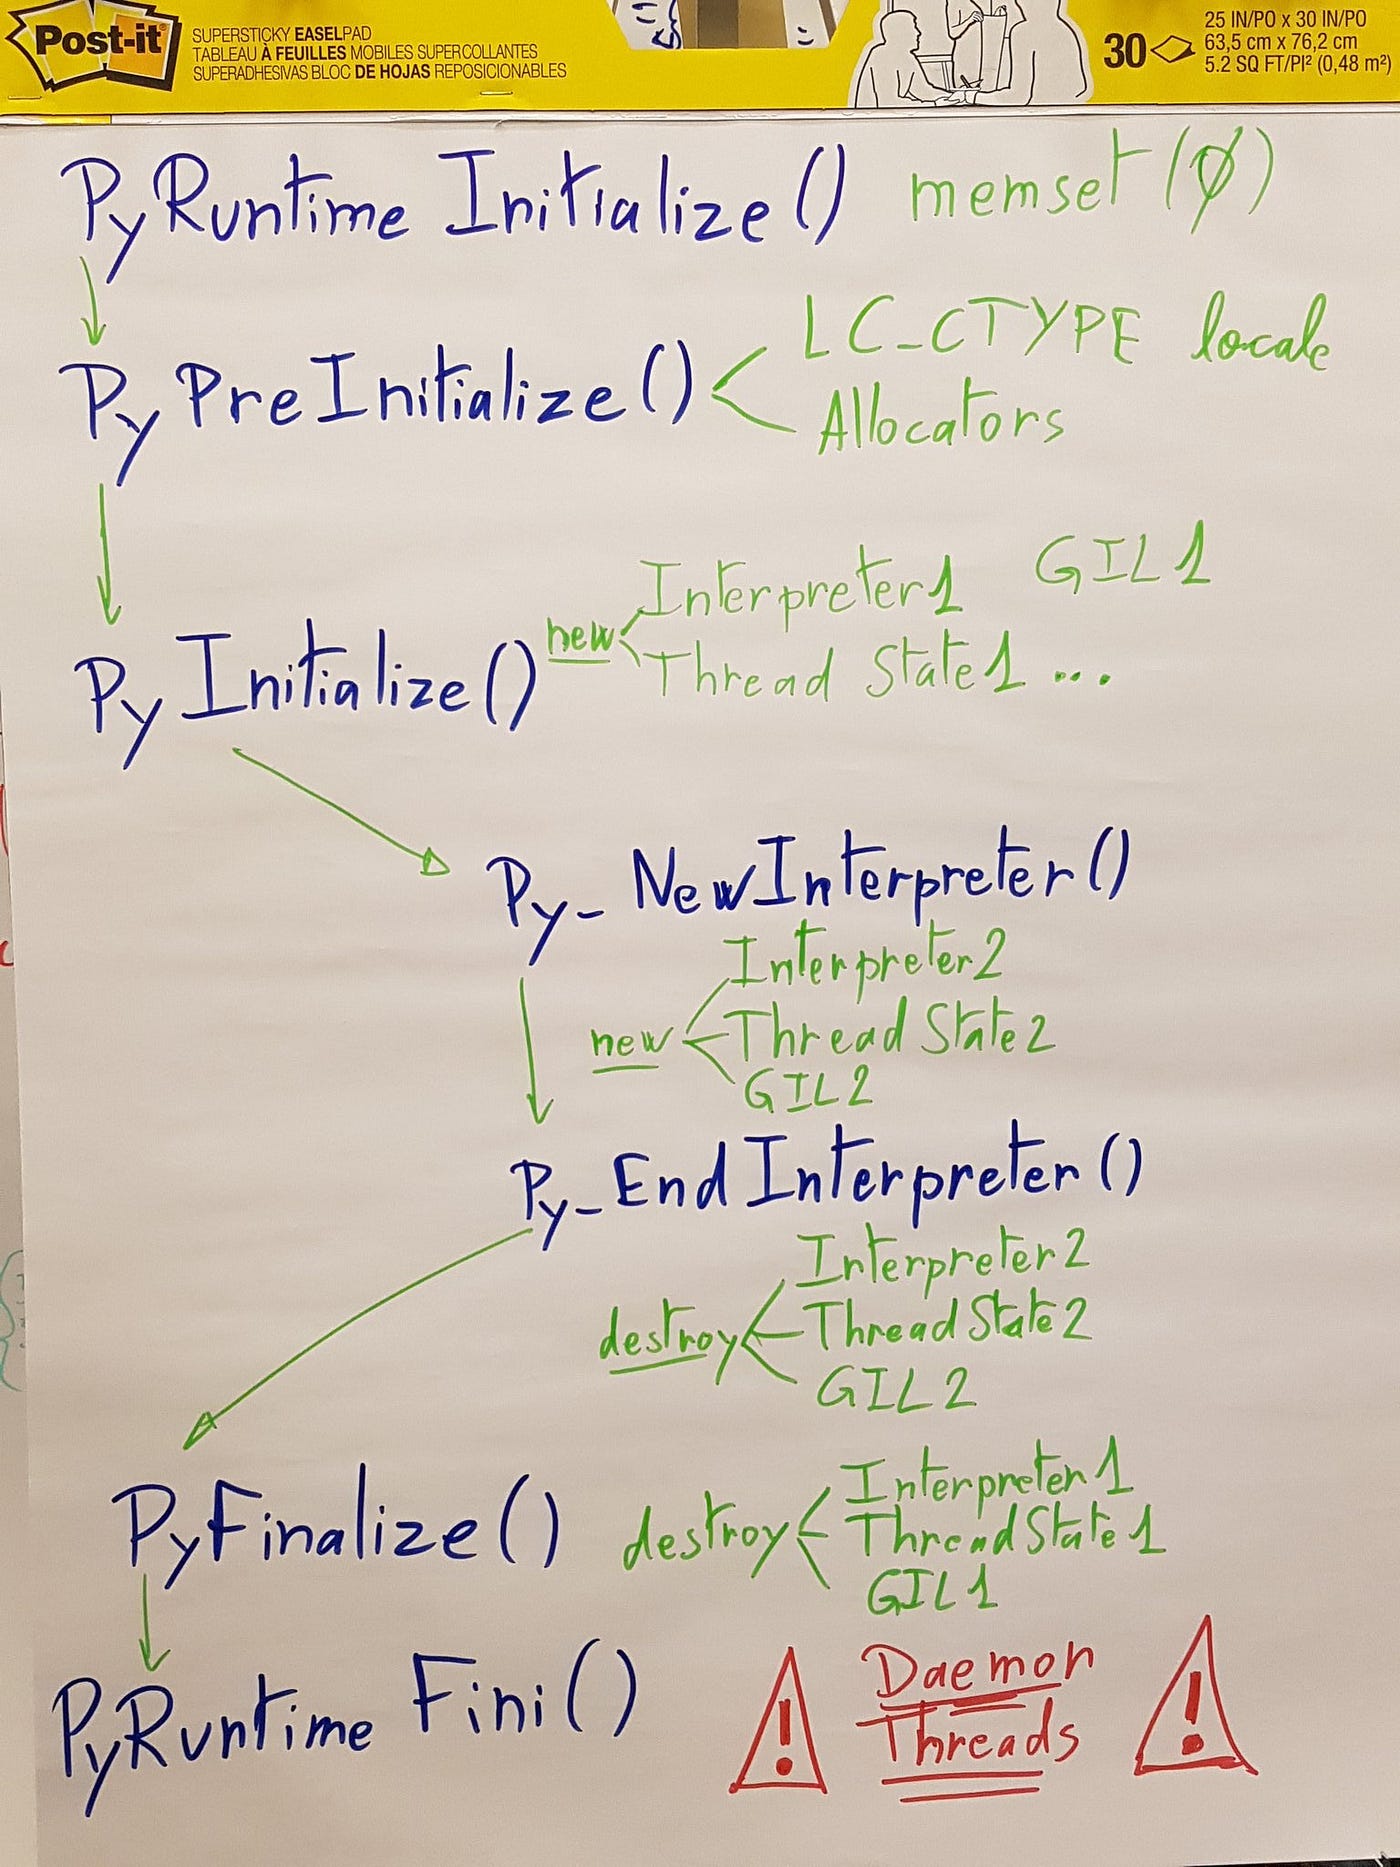 Post-it
SUPERSTICKY EASELPAD
TABLEAU À FEUILLES MOBILES SUPERCOLLANTES
SUPERADHESIVAS BLOC DE HOJAS REPOSICIONABLES
30
25 IN/PO x 30 IN/PO
63,5 cm x 76,2 cm
5.2 SQ FT/PI² (0,48 m²)
PyRuntime Initialize() memset(0)
PyPreInitialize() LC_CTYPE locale
Allocators
PyInitialize() new Interpreter1 GIL1
Thread State1 ...
Py_NewInterpreter()
new Interpreter2
Thread State2
GIL2
Py_EndInterpreter()
destroy Interpreter2
ThreadState2
GIL2
PyFinalize() destroy Interpreter1
ThreadState1
GIL1
PyRuntime Fini() ! Daemon !
Threads